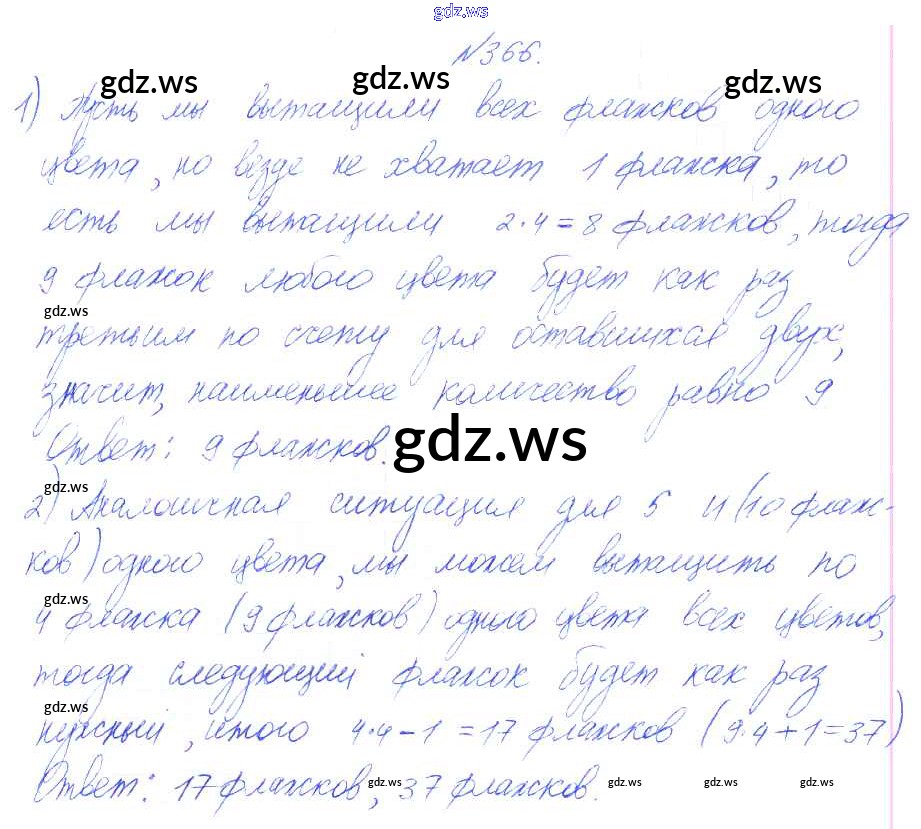 gdz.ws
№366.
gdz.ws gdz.ws gdz.ws
1) Пусть мы вытащили всех флажков одного
цвета, но везде не хватает 1 флажка, то
есть мы вытащили 2·4=8 флажков, тогда
9 флажок любого цвета будет как раз
gdz.ws
третьим по счету для оставшихся двух,
значит, наименьшее количество равно 9
Ответ: 9 флажков.
gdz.ws
gdz.ws
2) Аналогичная ситуация для 5 и (10 флаж-
ков) одного цвета, мы можем вытащить по
gdz.ws
4 флажка (9 флажков) одного цвета всех цветов,
тогда следующий флажок будет как раз
gdz.ws
нужный, итого 4·4-1=17 флажков (9·4+1=37)
Ответ: 17 флажков, 37 флажков.
gdz.ws gdz.ws gdz.ws gdz.ws